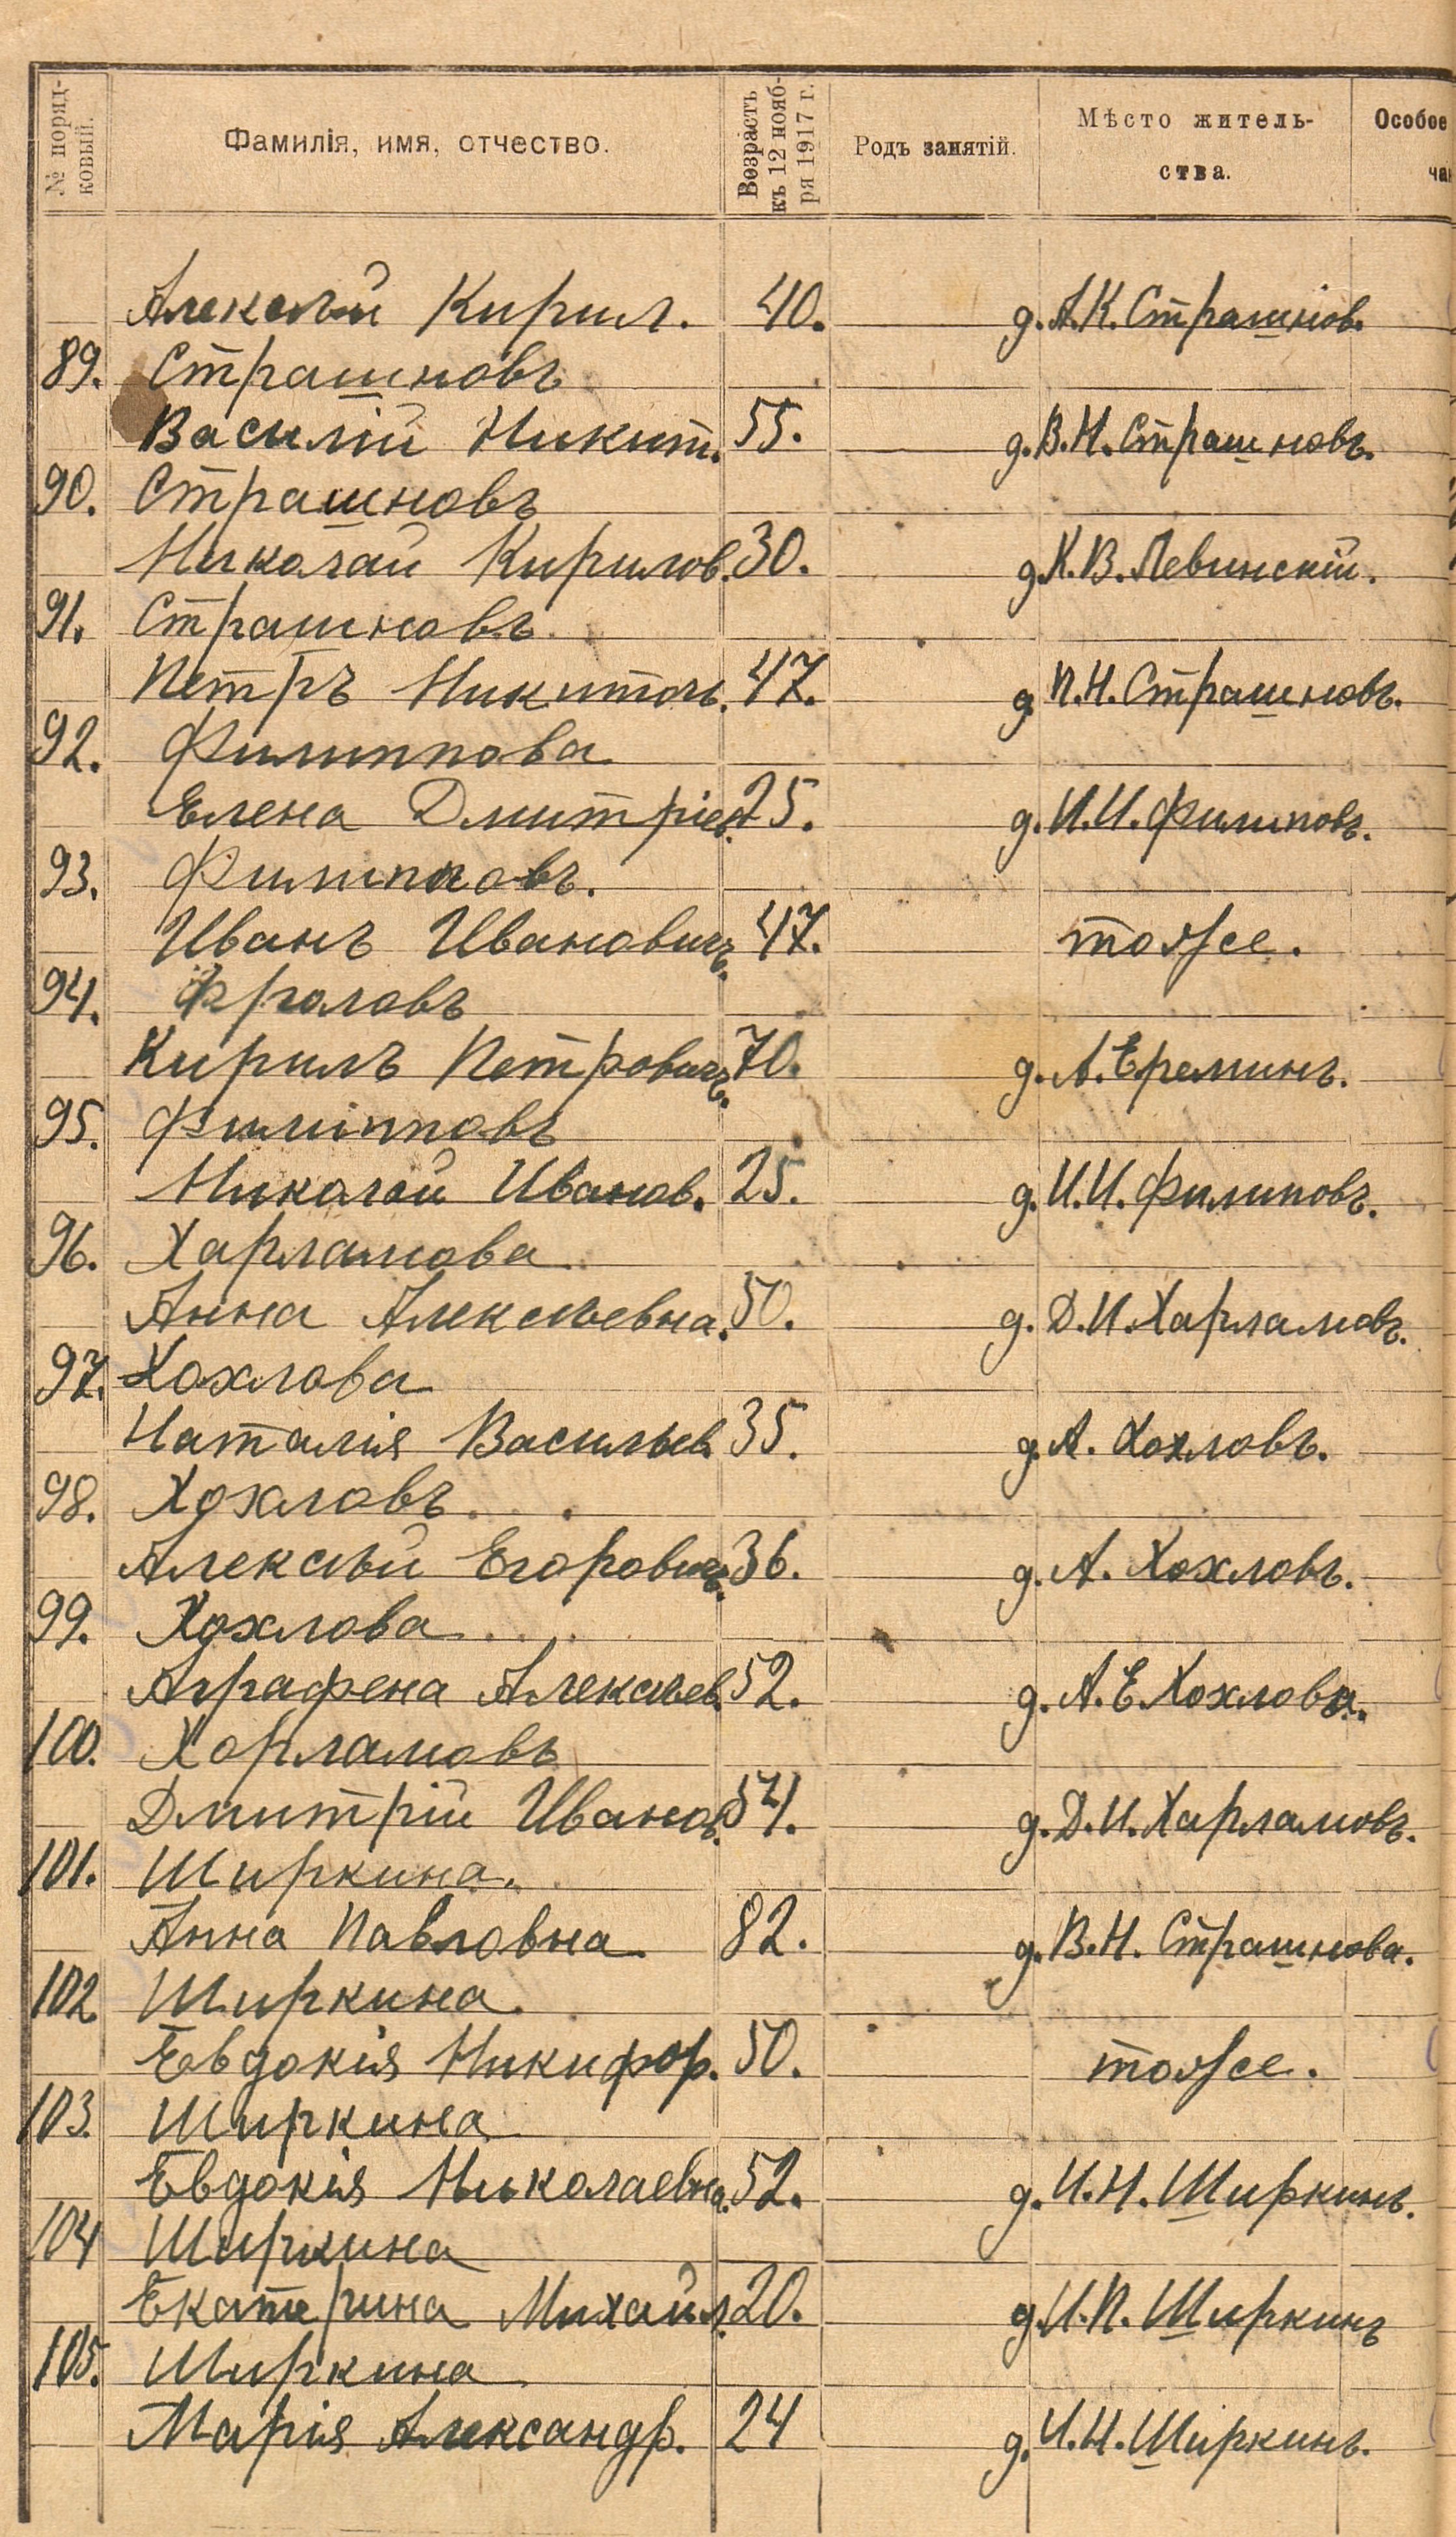 № поряд-
ковый.
Фамилія, имя, отчество.
Возрастъ
къ 12 нояб-
ря 1917 г.
Родъ занятій.
Мѣсто житель-
ства.
Особое
Алексѣй Кирил. 40. д. А. К. Страшнов.
89. Страшновъ
Василій Никит. 55. д. В. Н. Страшновъ.
90. Страшновъ
Николай Кирилов. 30. д. К. В. Левинскій.
91. Страшновъ
Петръ Никитов. 47. д. П. Н. Страшновъ.
92. Филиппова
Елена Дмитріев. 25. д. И. И. Филиповъ.
93. Филипповъ.
Иванъ Ивановичъ. 47. тоже.
94. Фроловъ
Кирилъ Петровичъ. 70. д. А. Ереминъ.
95. Филипповъ
Николай Иванов. 25. д. И. И. Филиповъ.
96. Харламова
Анна Алексѣевна. 50. д. Д. И. Харламовъ.
97. Хохлова
Наталія Васильев. 35. д. А. Хохловъ.
98. Хохловъ
Алексѣй Егоровичъ. 36. д. А. Хохловъ.
99. Хохлова
Аграфена Алексѣев. 52. д. А. Е. Хохлова.
100. Харламовъ
Дмитрій Иванов. 54. д. Д. И. Харламовъ.
101. Ширкина.
Анна Павловна 82. д. В. Н. Страшнова.
102 Ширкина.
Евдокія Никифор. 50. тоже.
103. Ширкина
Евдокія Николаевна. 52. д. И. Н. Ширкинъ.
104 Ширкина
Екатерина Михайл. 20. д. И. П. Ширкинъ
105. Ширкина
Марія Александр. 24 д. И. Н. Ширкинъ.